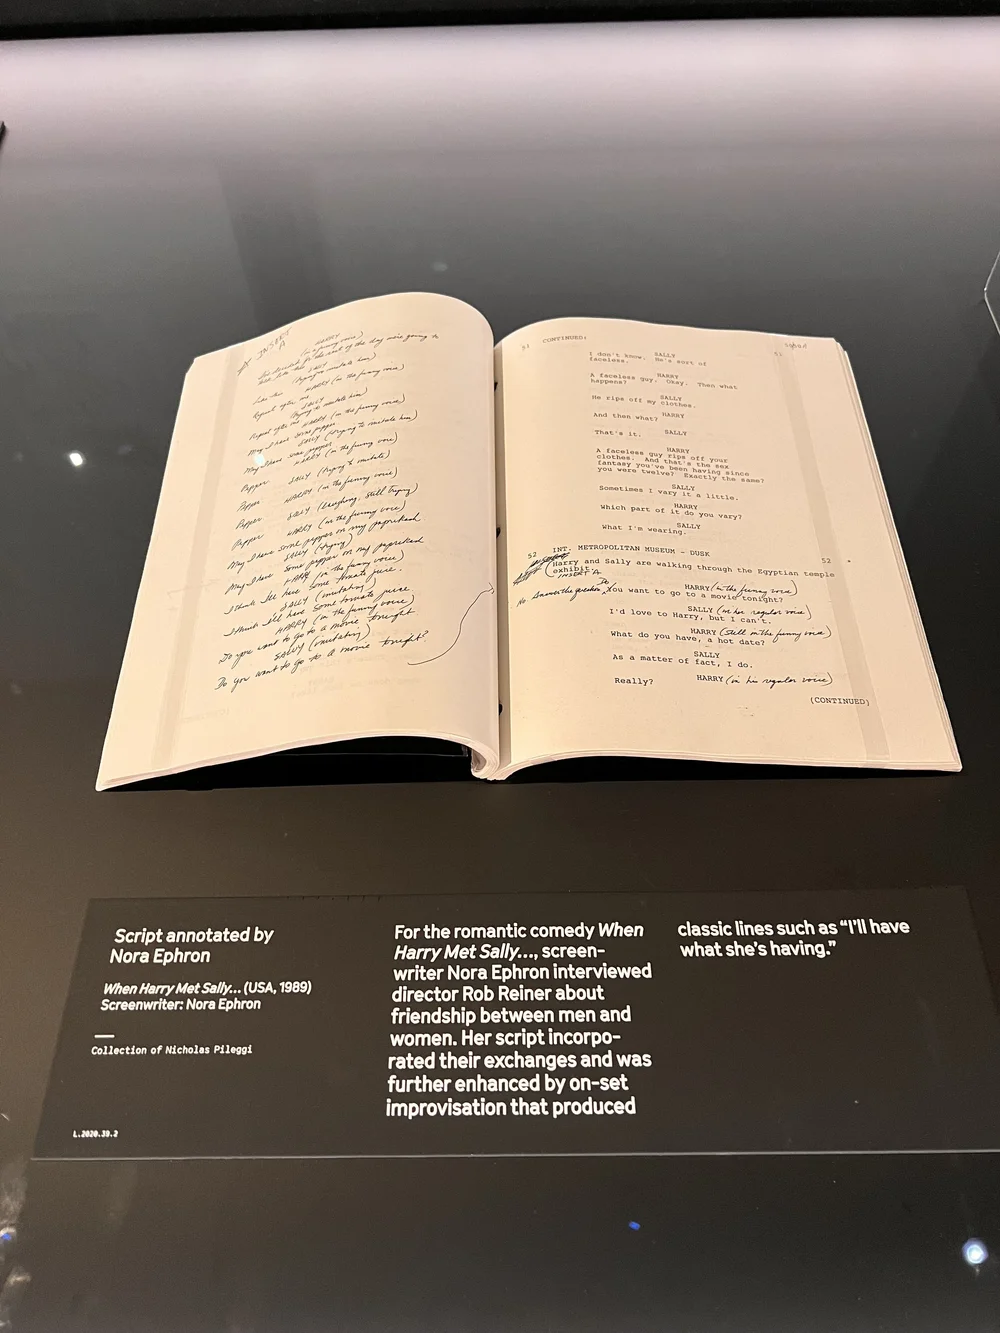 * INSERT A
HARRY
(in a funny voice)
for the rest of the day we're going to
talk like this
SALLY
(trying to imitate him)
Like this
HARRY (in the funny voice)
Repeat after me
SALLY
(trying to imitate him)
Repeat after me
HARRY (in the funny voice)
May I have some pepper
SALLY (trying to imitate him)
May I have some pepper
HARRY (in the funny voice)
Pepper
SALLY (trying to imitate)
Pepper
HARRY (in the funny voice)
Pepper
SALLY (laughing, still trying)
Pepper
HARRY (in the funny voice)
May I have some pepper on my paprikash.
SALLY (trying)
May I have some pepper on my paprikash
HARRY (in the funny voice)
I think I'll have some tomato juice.
SALLY (imitating)
I think I'll have some tomato juice
HARRY (in the funny voice)
Do you want to go to a movie tonight
SALLY (imitating)
Do you want to go to a movie tonight?
51 CONTINUED:
51
SALLY
I don't know. He's sort of
faceless.
HARRY
A faceless guy. Okay. Then what
happens?
SALLY
He rips off my clothes.
HARRY
And then what?
SALLY
That's it.
HARRY
A faceless guy rips off your
clothes. And that's the sex
fantasy you've been having since
you were twelve? Exactly the same?
SALLY
Sometimes I vary it a little.
HARRY
Which part of it do you vary?
SALLY
What I'm wearing.
52 INT. METROPOLITAN MUSEUM - DUSK 52
Harry and Sally are walking through the Egyptian temple
exhibit.
INSERT A
HARRY (in the funny voice)
No. Answer the question, Do you want to go to a movie tonight?
SALLY (in her regular voice)
I'd love to Harry, but I can't.
HARRY (still in the funny voice)
What do you have, a hot date?
SALLY
As a matter of fact, I do.
HARRY (in his regular voice)
Really?
(CONTINUED)
Script annotated by
Nora Ephron
When Harry Met Sally... (USA, 1989)
Screenwriter: Nora Ephron
Collection of Nicholas Pileggi
L.2020.39.2
For the romantic comedy When
Harry Met Sally..., screen-
writer Nora Ephron interviewed
director Rob Reiner about
friendship between men and
women. Her script incorpo-
rated their exchanges and was
further enhanced by on-set
improvisation that produced
classic lines such as “I'll have
what she's having.”